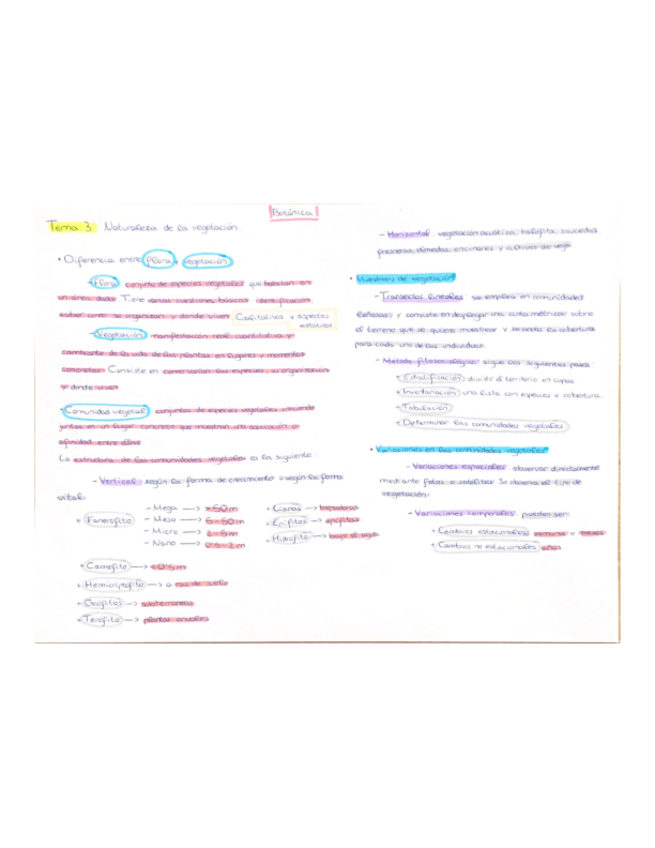 Botánica
Tema 3. Naturaleza de la vegetación.
• Diferencia entre Flora y vegetación
- Flora conjunto de especies vegetales que habitan en
un área dada. Tiene varias cuestiones básicas: identificación,
saber como se organizan y donde viven. Cualitativos y aspectos
estáticos
- Vegetación manifestación real, cuantitativa y
cambiante de la vida de las plantas en lugares y momentos
concretos. Consiste en como varían las especies, su organización
y donde viven
• Comunidad vegetal conjuntos de especies vegetales creciendo
juntas en un lugar concreto que muestran una asociación o
afinidad entre ellas
La estructura de las comunidades vegetales es la siguiente:
- Vertical según la forma de crecimiento o según la forma
vital:
+ Fanerófito
- Mega → >50m
- Meso → 5-50m
- Micro → 2-5m
- Nano → 2m
+ Lianas → trepadoras
+ Epífitos → epífitas
+ Hidrófito → bajo el agua
+ Caméfito →
+ Hemicriptófito → a ras de suelo
+ Geófitos → subterráneos
+ Terófito → plantas anuales
- Horizontal: vegetación acuática, halófita, saucedas
fresnedas, olmedas, encinares y cultivos de vega
• Muestreos de vegetación
- Transectos lineales se emplea en comunidades
leñosas y consiste en desplegar una cinta métrica sobre
el terreno que se quiere muestrear y se anota la cobertura
para cada uno de los individuos.
- Método fitosociológico sigue los siguientes pasos:
+ Estratificación: dividir el territorio en capas
+ Inventariación: una lista con especies y cobertura.
+ Tabulación
+ Determinar las comunidades vegetales
• Variaciones en las comunidades vegetales
- Variaciones espaciales: observar directamente
mediante fotos o satélites. Se observa el tipo de
vegetación.
- Variaciones temporales pueden ser:
+ Cambios estacionales semanas o meses
+ Cambios no estacionales años.